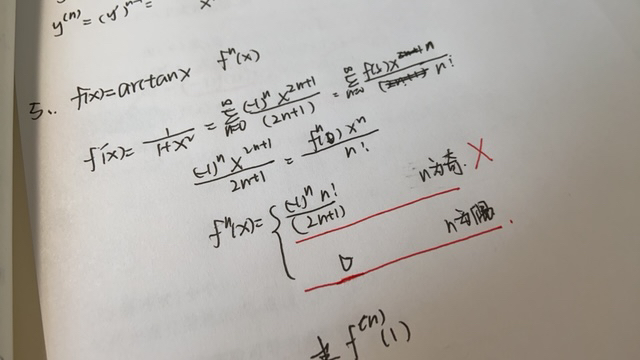 y⁽ⁿ⁾ = (y')ⁿ⁻¹ =
5. f(x)=arctanx fⁿ(x)
f'(x)= 1/(1+x²) = ∑_{n=0}^{∞} (-1)ⁿ x²ⁿ⁺¹/(2n+1) = ∑_{n=0}^{∞} f(0)xⁿ/n!
(-1)ⁿ x²ⁿ⁺¹/(2n+1) = fⁿ(0) xⁿ/n!
fⁿ(x)= { (-1)ⁿ n!/(2n+1) n为奇. X
0 n为偶.
求 f⁽ⁿ⁾(1)